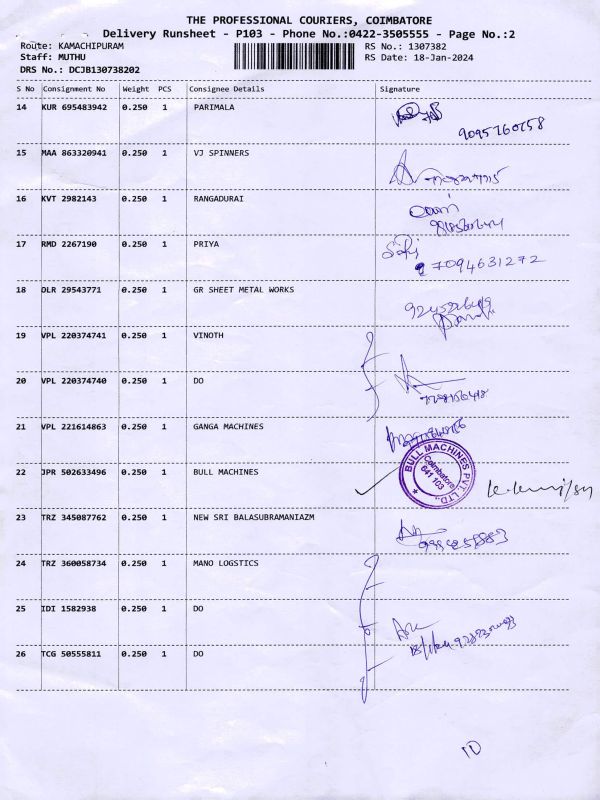 THE PROFESSIONAL COURIERS, COIMBATORE
Delivery Runsheet - P103 - Phone No.:0422-3505555 - Page No.:2
Route: KAMACHIPURAM RS No.: 1307382
Staff: MUTHU RS Date: 18-Jan-2024
DRS No.: DCJB130738202
S No Consignment No Weight PCS Consignee Details Signature
14 KUR 695483942 0.250 1 PARIMALA
15 MAA 863320941 0.250 1 VJ SPINNERS
16 KVT 2982143 0.250 1 RANGADURAI
17 RMD 2267190 0.250 1 PRIYA
7094631272
18 DLR 29543771 0.250 1 GR SHEET METAL WORKS
19 VPL 220374741 0.250 1 VINOTH
20 VPL 220374740 0.250 1 DO
21 VPL 221614863 0.250 1 GANGA MACHINES
22 JPR 502633496 0.250 1 BULL MACHINES
BULL MACHINES PVT. LTD.,
Coimbatore
641 103
23 TRZ 345087762 0.250 1 NEW SRI BALASUBRAMANIAZM
24 TRZ 360058734 0.250 1 MANO LOGSTICS
25 IDI 1582938 0.250 1 DO
26 TCG 50555811 0.250 1 DO